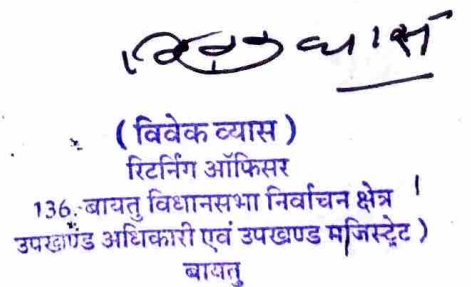 (विवेक व्यास)
रिटर्निंग ऑफिसर
136.-बायतु विधानसभा निर्वाचन क्षेत्र
उपखण्ड अधिकारी एवं उपखण्ड मजिस्ट्रेट)
बायतु